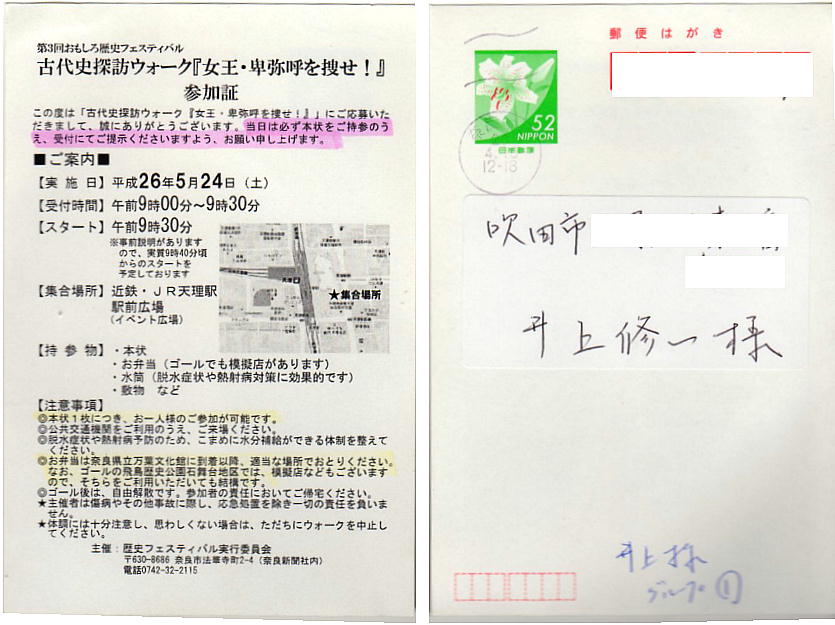 第3回おもしろ歴史フェスティバル
古代史探訪ウォーク『女王・卑弥呼を捜せ！』
参加証
この度は「古代史探訪ウォーク『女王・卑弥呼を捜せ！』」にご応募いた
だきまして、誠にありがとうございます。当日は必ず本状をご持参のう
え、受付にてご提示くださいますよう、お願い申し上げます。
■ご案内■
【実 施 日】平成26年5月24日（土）
【受付時間】午前9時00分～9時30分
【スタート】午前9時30分
※事前説明があります
ので、実質9時40分頃
からのスタートを
予定しております
【集合場所】近鉄・ＪＲ天理駅
駅前広場
（イベント広場）
★集合場所
【持 参 物】・本状
・お弁当（ゴールでも模擬店があります）
・水筒（脱水症状や熱射病対策に効果的です）
・敷物　など
【注意事項】
◎本状１枚につき、お一人様のご参加が可能です。
◎公共交通機関をご利用のうえ、ご来場ください。
◎脱水症状や熱射病予防のため、こまめに水分補給ができる体制を整えて
ください。
◎お弁当は奈良県立万葉文化館に到着以降、適当な場所でおとりください。
なお、ゴールの飛鳥歴史公園石舞台地区では、模擬店などもございます
ので、そちらをご利用いただいても結構です。
◎ゴール後は、自由解散です。参加者の責任においてご帰宅ください。
★主催者は傷病やその他事故に際し、応急処置を除き一切の責任を負いま
せん。
★体調には十分注意し、思わしくない場合は、ただちにウォークを中止し
てください。
主催：歴史フェスティバル実行委員会
〒630-8686 奈良市法華寺町2-4（奈良新聞社内）
電話0742-32-2115
郵便はがき
52
NIPPON
日本郵便
12-18
吹田市
井上修一様
井上様
グループ①